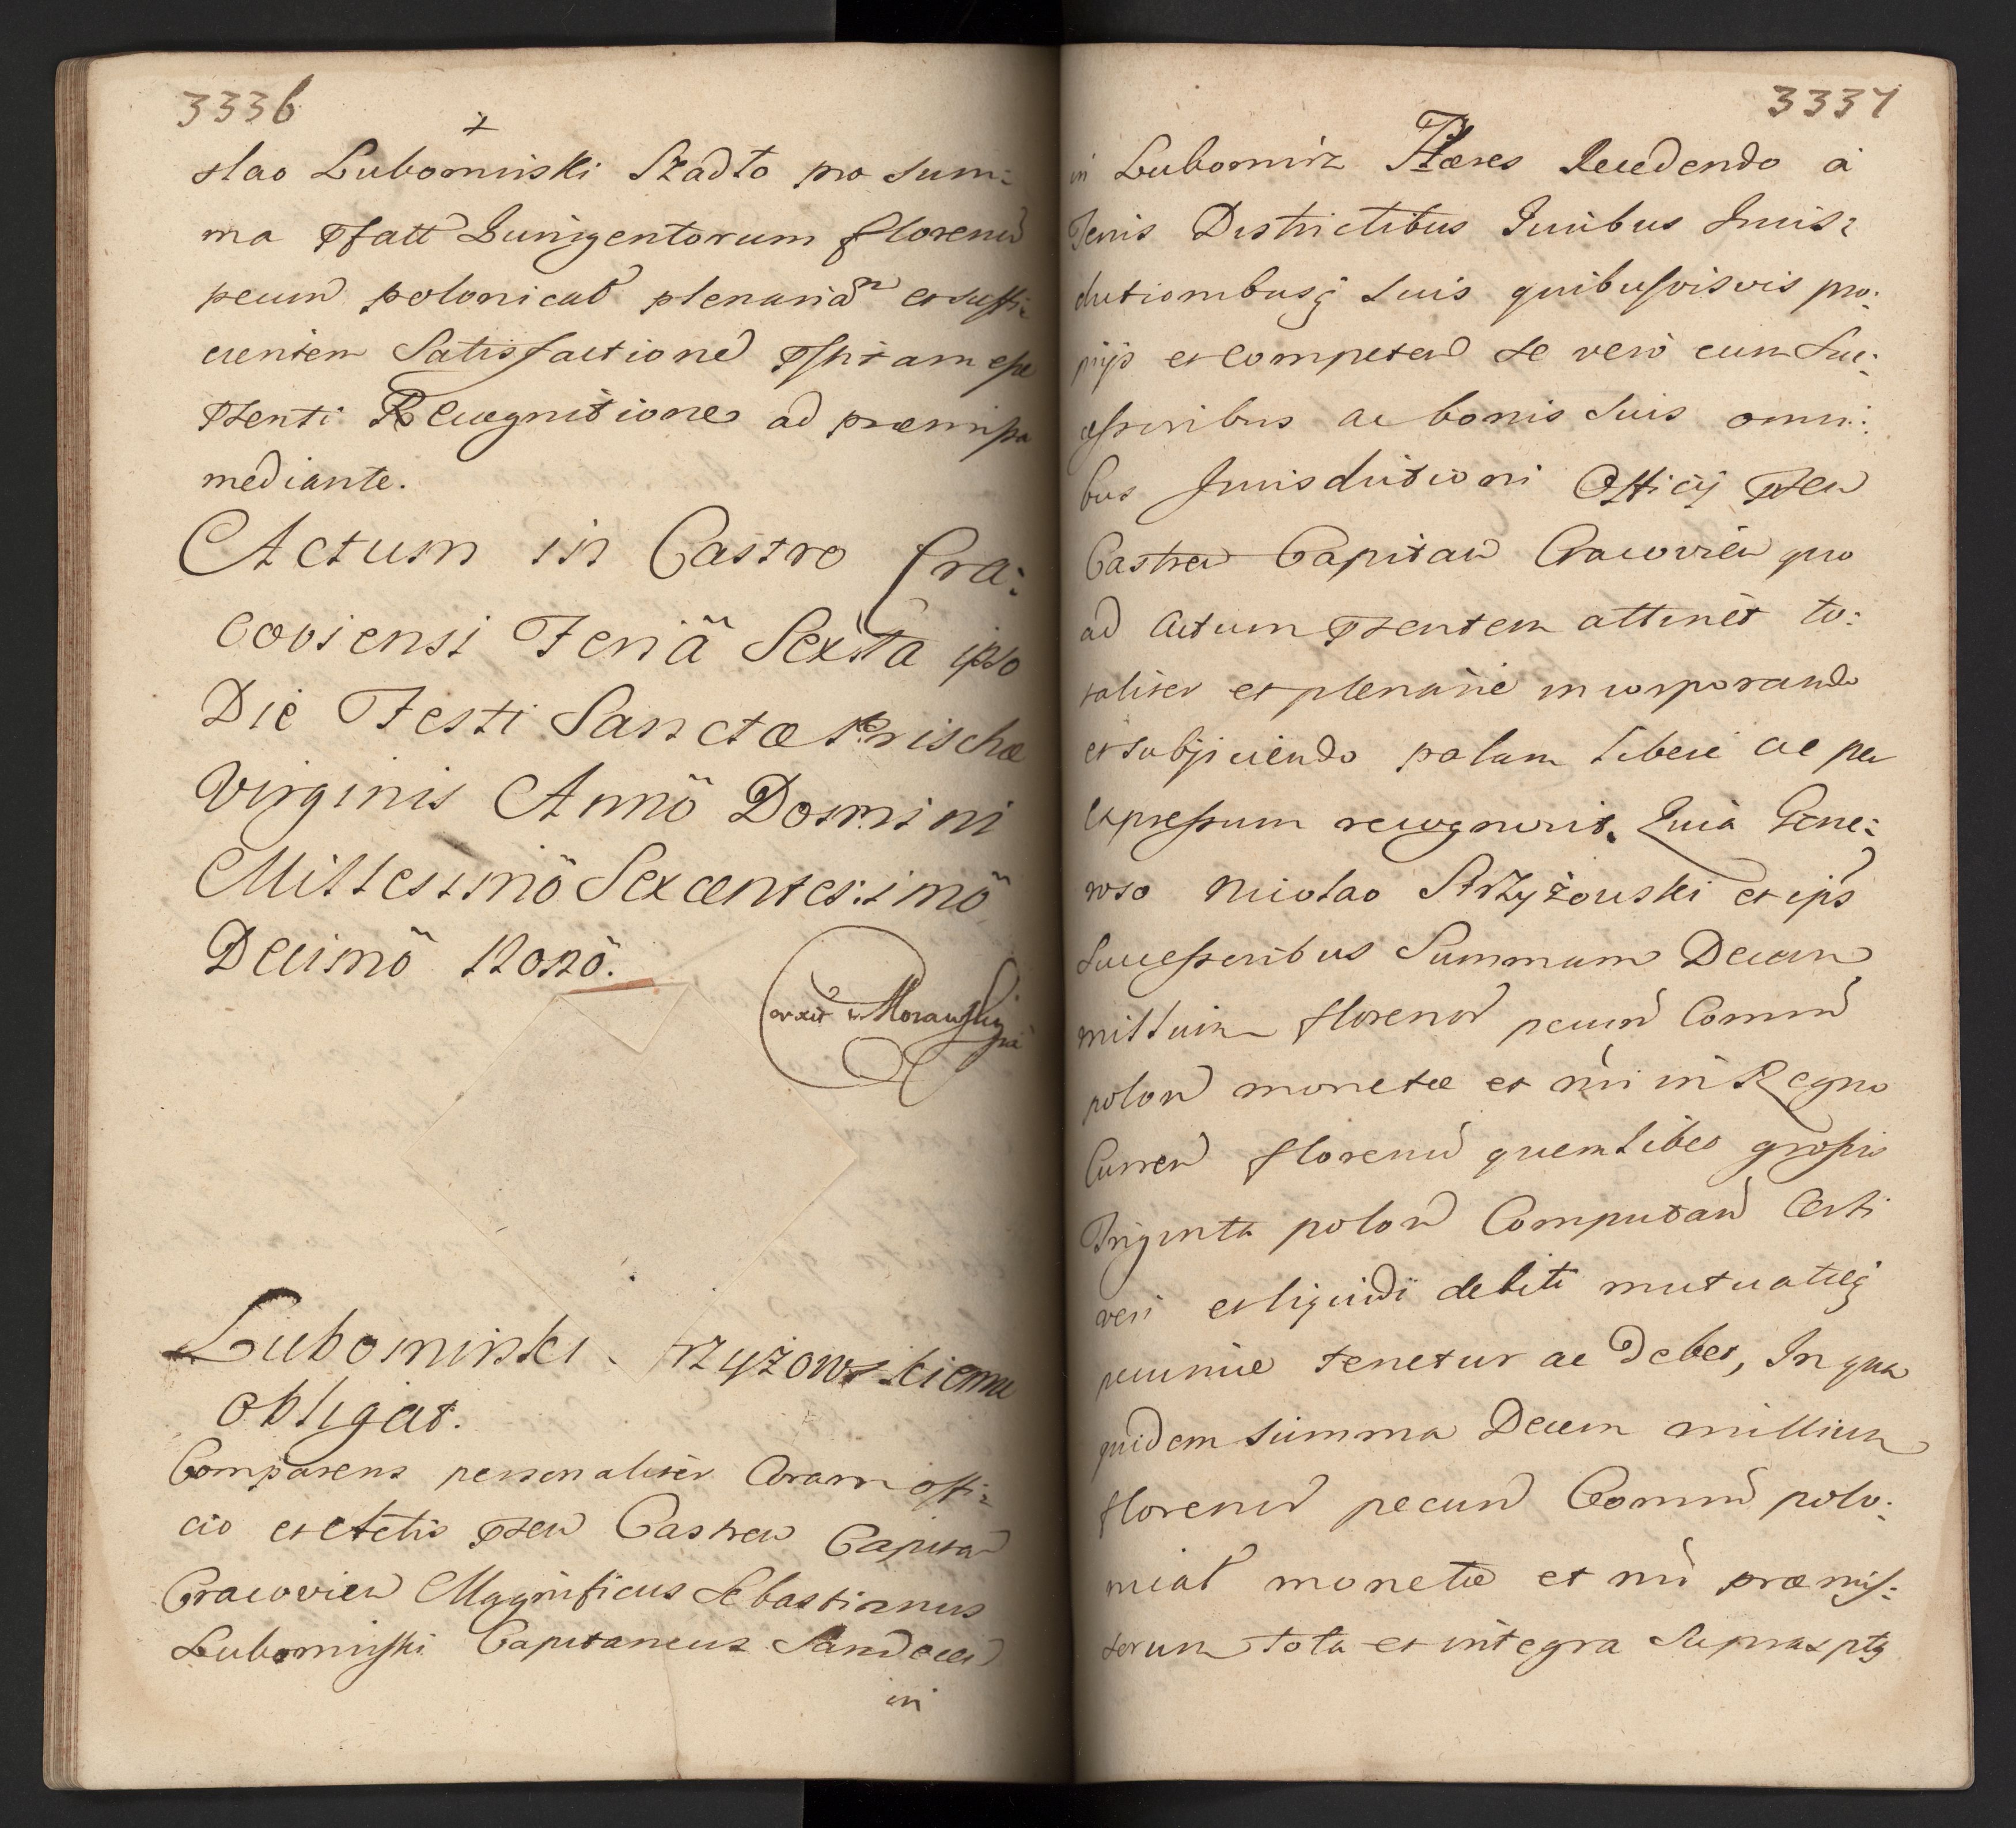 3336
slao Lubomirski Sradto pro sum:
ma Pfatt Quingentorum florenū
pecun polonical plenariam et suffi:
cientem Satisfactione Pspitam esse
Pzenti Recognitione ad præmissa
mediante.
Actum in Castro Cra:
coviensi Feriä Sexta ipso
Die Festi Sanctæ Prischæ
Virginis Annö Domini
Millesimö Sexcentesimö
Decimö Nonö.
Lubomirski rzyżowskiemu
obligat.
Comparens personaliter Coram offi:
cio et Actis Pzen Castren Capitan
Cracovien Magnificus Sebastianus
Lubomirski Capitaneus Sandecen
in
3337
in Lubomirz Hæres Recedendo à
Terris Districtibus Juribus Juris:
dictionibusq suis quibusvis pro:
prijs et Competen se vero cum Suc:
cessoribus ac bonis Suis omni:
bus Jurisdictioni Officij Pzen
Castren Capitan Cracovien quo
ad Actum Pzentem attinet to:
taliter et plenarie incorporando
et subjiciendo palam libere ac per
expressum recognovit. Quia Gene:
roso Nicolao Strzyżowski et ips
Successoribus Summam Decem
millium florenor pecun Comun
polon monetæ et nri in Regno
Curren florenū quemlibet grossis
Triginta polon Computan Certi
veri et liquidi debiti mutuatæq
pecuniæ tenetur ac Debet, In qua
quidem summa Decem millium
florenor pecun Comun polo:
nical monetæ et nri præmis:
sorum tota et integra Suprascptq